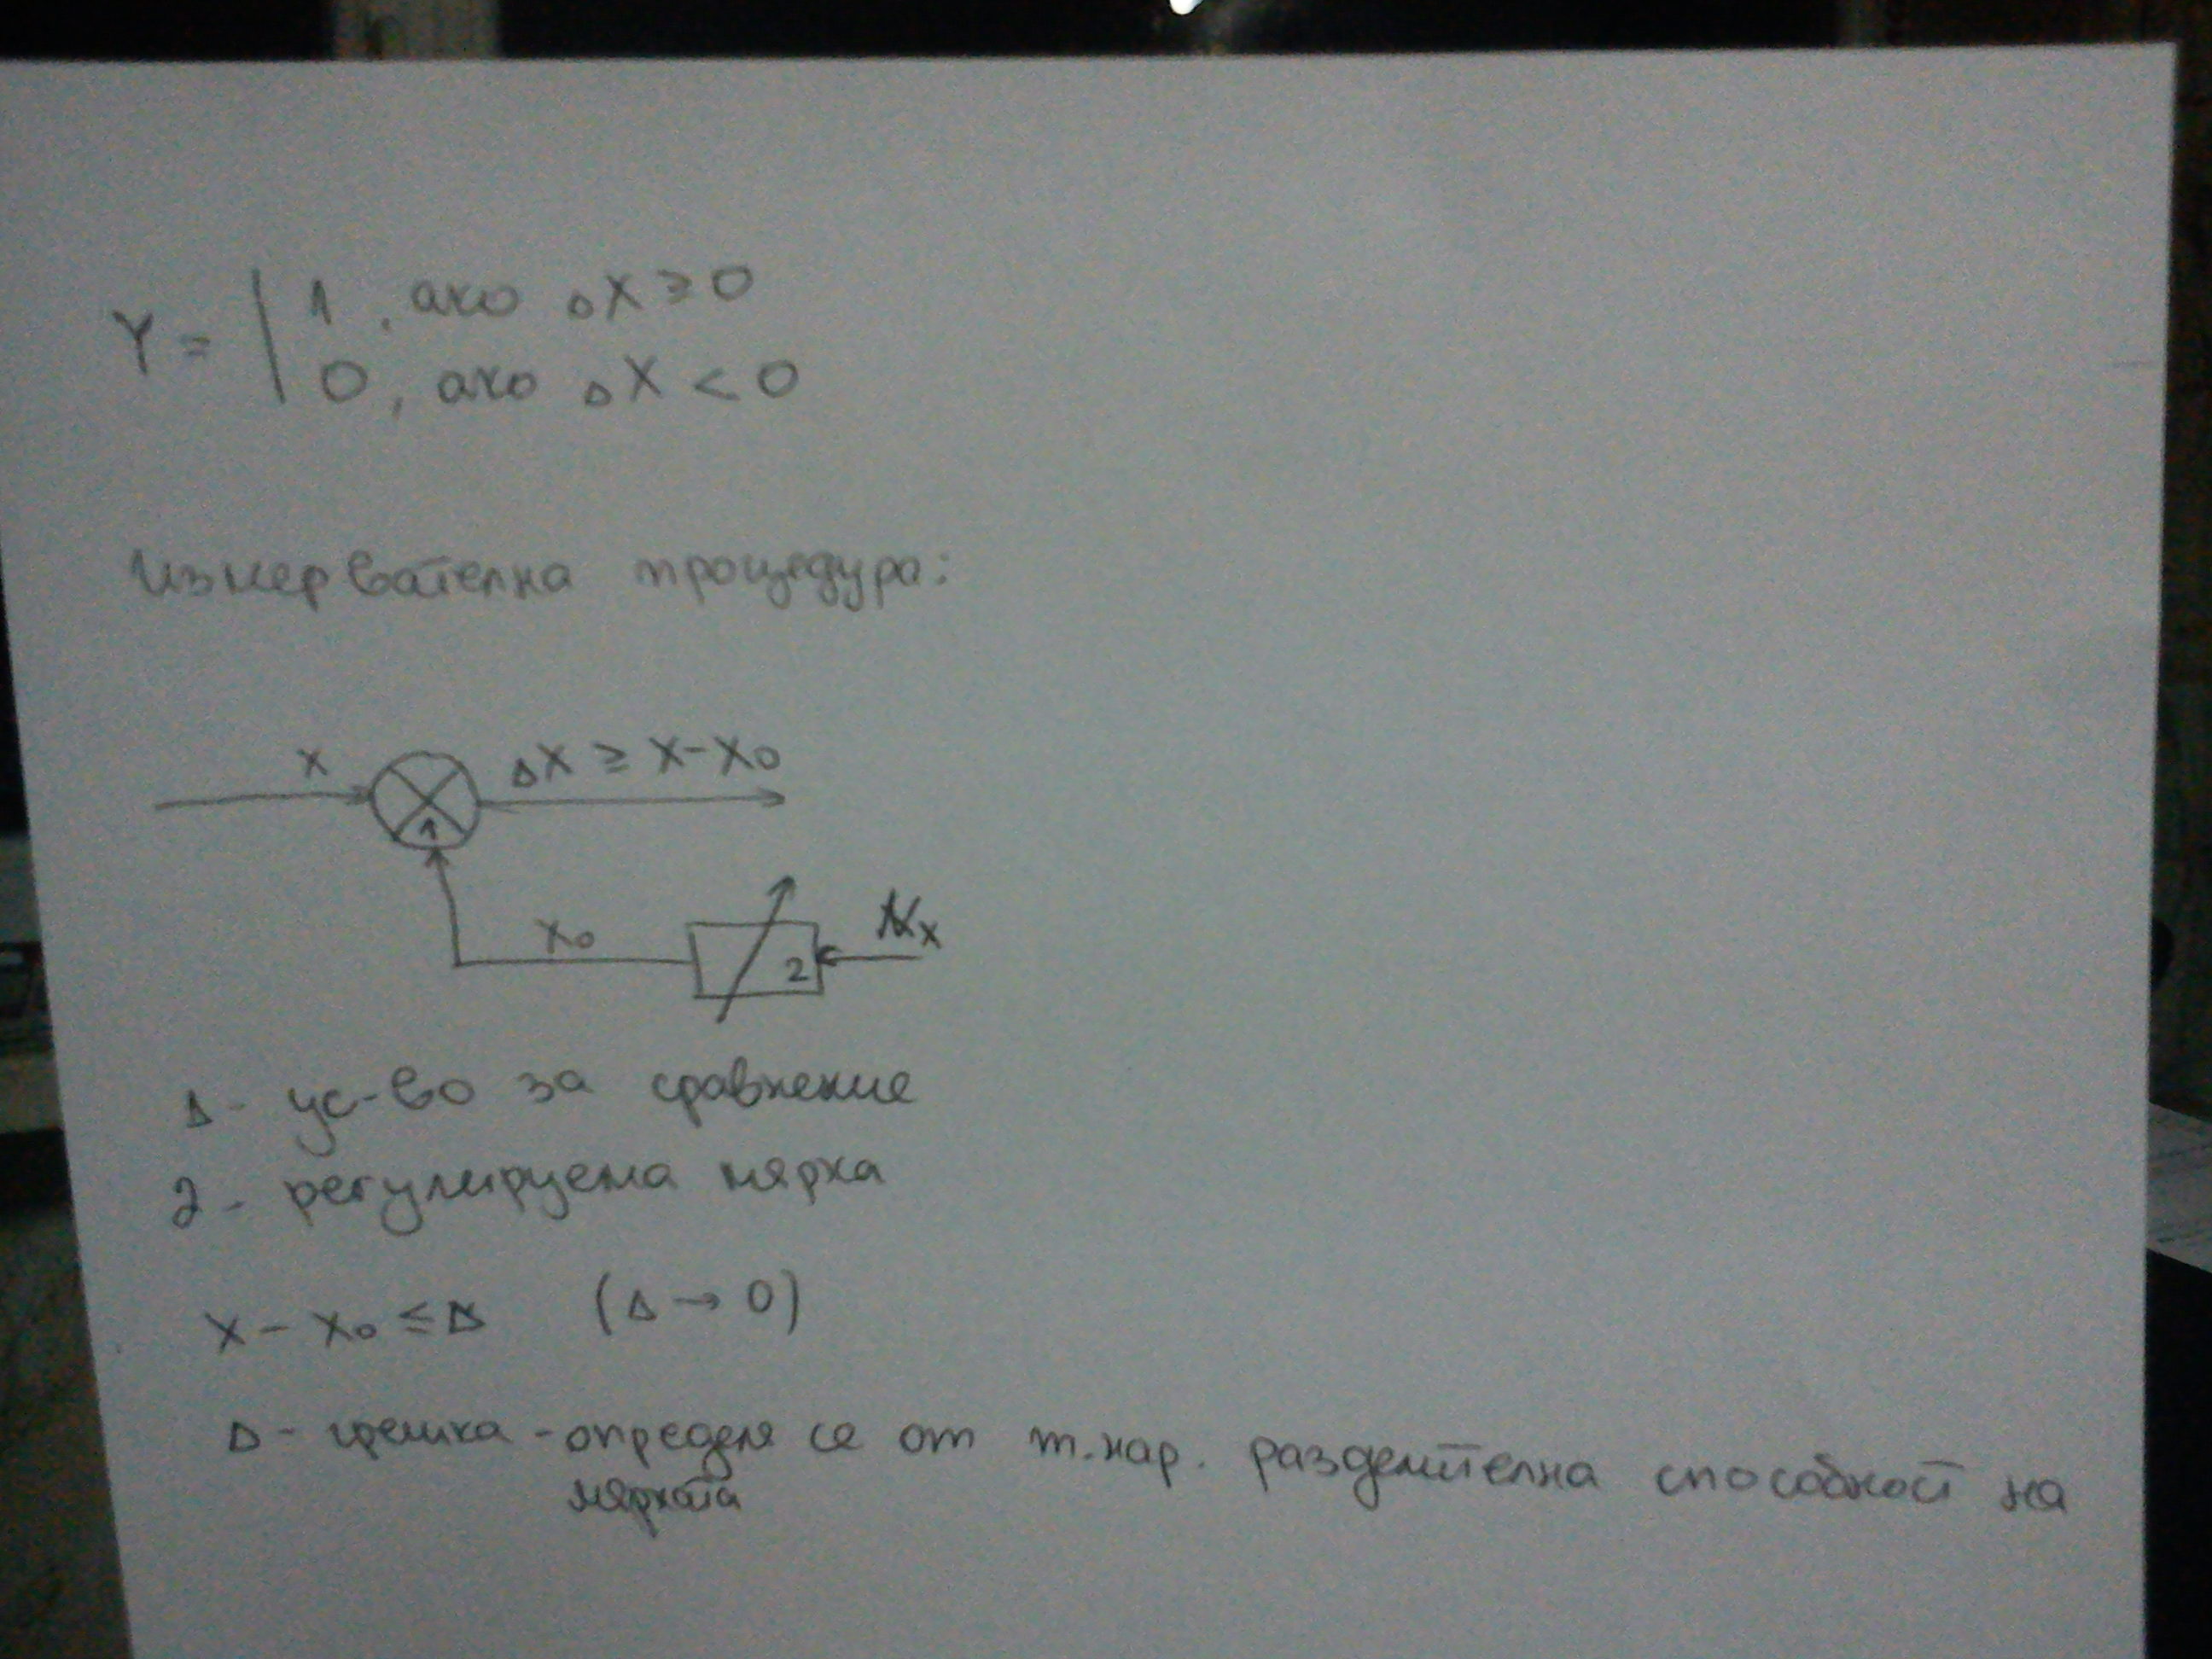 Y = | 1, ако ΔX ≥ 0
0, ако ΔX < 0
Измервателна процедура:
X
ΔX ≥ X-X₀
1
X₀
2
Nₓ
1 - ус-во за сравнение
2 - регулируема мярка
X - X₀ ≤ Δ (Δ → 0)
Δ - грешка - определя се от т.нар. разделителна способност на
мярката